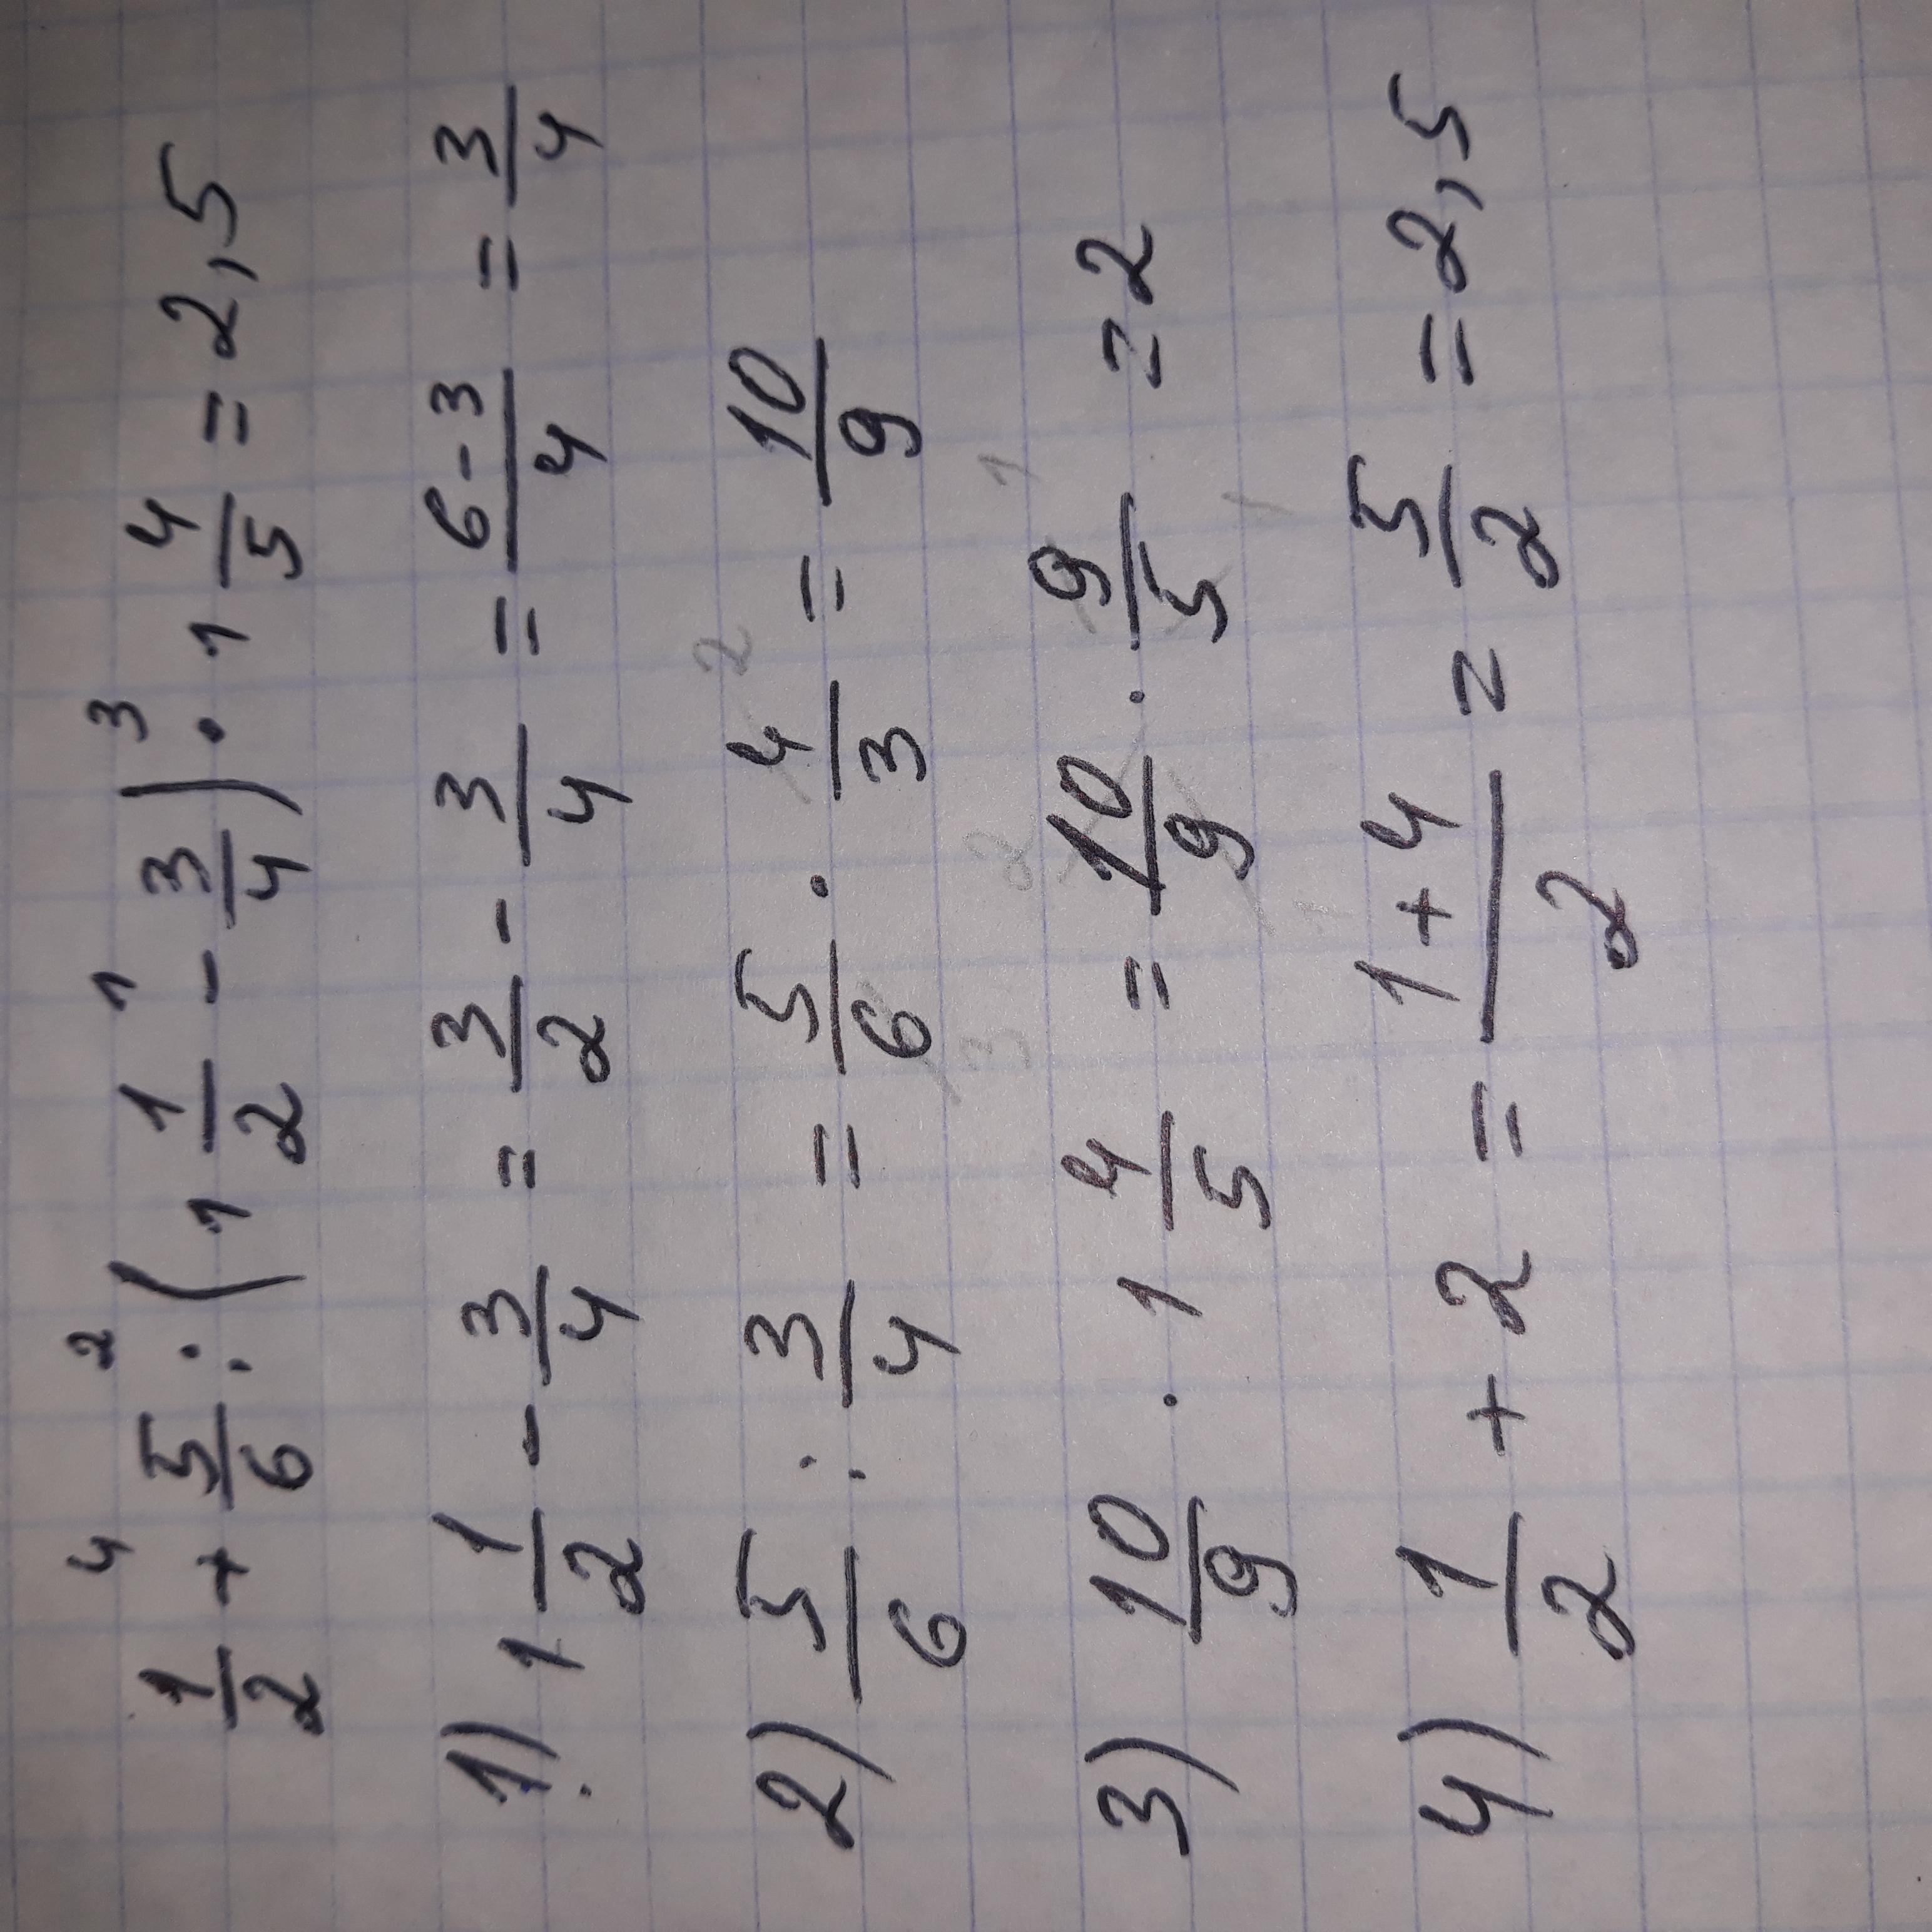 4 2 1 3
1/2 + 5/6 : (1 1/2 - 3/4) · 1 4/5 = 2,5
1) 1 1/2 - 3/4 = 3/2 - 3/4 = (6-3)/4 = 3/4
2) 5/6 : 3/4 = 5/6 · 4/3 = 10/9
3 2
3) 10/9 · 1 4/5 = 10/9 · 9/5 = 2
2 1 1 1
4) 1/2 + 2 = (1+4)/2 = 5/2 = 2,5